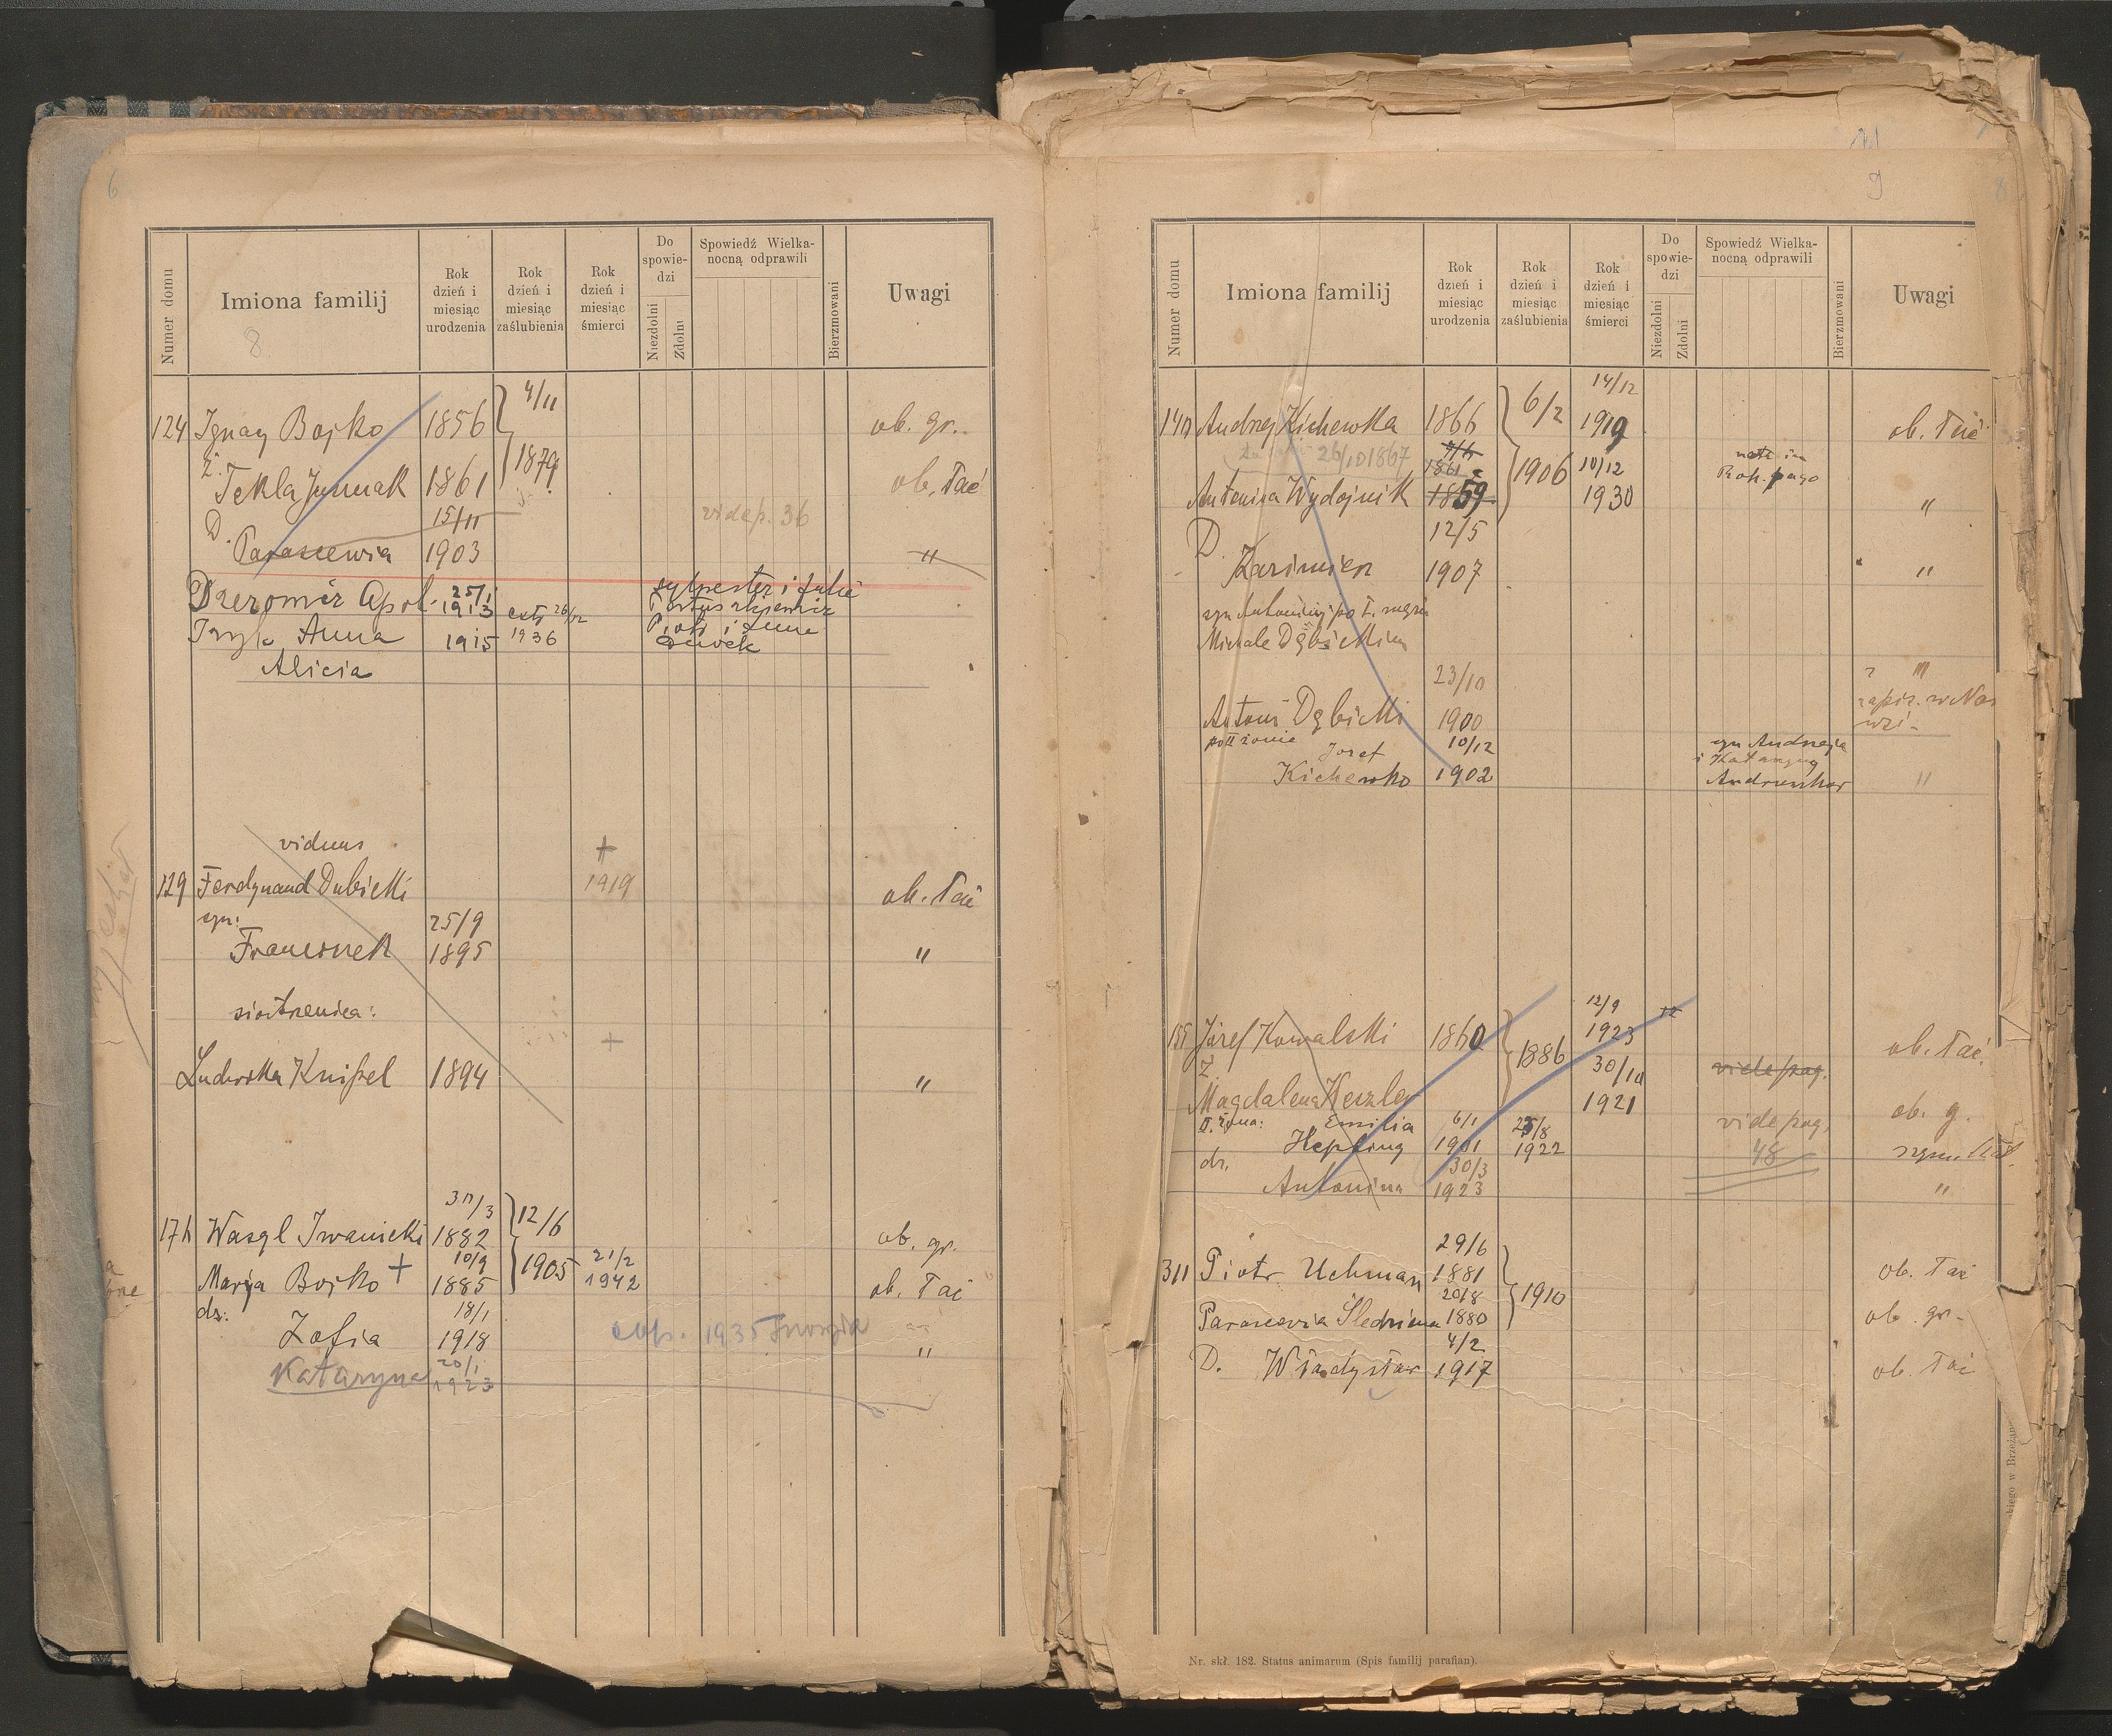 6
Numer domu
Imiona familij
8
Rok dzień i miesiąc urodzenia
Rok dzień i miesiąc zaślubienia
Rok dzień i miesiąc śmierci
Do spowiedzi
Niezdolni
Zdolni
Spowiedź Wielkanocną odprawili
Bierzmowani
Uwagi
4/11
124 Ignacy Bojko 1856 ob. gr.
ż. Tekla 1861 1879 ob. łać
D. 15/11 vide p. 36
Parascewia 1903 "
Apol. 25/1 1913 26/12 Sylwester i
Anna 1915 1936 Piotr i Anna
Alicia
viduus +
129 Ferdynand Dubicki 1919 ob. łać
syn: 25/9
Franciszek 1895 "
siostrzenica: +
Ludwika Knipel 1894 "
30/3 12/6
176 Wasyl Iwanicki 1882 ob. gr.
10/9 21/2
Marja Bojko + 1885 1905 1942 ob. łać
dz: 18/1
Zofia 1918 cop. 1935 "
Kataryna 20/1 1923
9
Numer domu
Imiona familij
Rok dzień i miesiąc urodzenia
Rok dzień i miesiąc zaślubienia
Rok dzień i miesiąc śmierci
Do spowiedzi
Niezdolni
Zdolni
Spowiedź Wielkanocną odprawili
Bierzmowani
Uwagi
14/12
140 Andrzej Kichewka 1866 6/2 1919 ob. łać
26/10 1867
1861 1906 10/12
Antonina Wydojnik 1859 1930 "
D. 12/5
Kazimierz 1907 "
syn Antoniny po I. mężu
Michale Dębickim
23/10
Antoni Dębicki 1900
po II żonie Jozef 10/12 syn Andrzeja i Katarzyny
Kichewko 1902 "
12/9
155 Józef Kowalski 1860 1923 ob. łać
Ż. 1886 30/10 vide pag.
Magdalena Keszler 1921 ob. g.
II. żona: Emilia 6/1 25/8 vide pag.
Hepting 1901 1922 48 rzym. kat.
dz. 30/3
Antonina 1923 "
29/6
311 Piotr Uchman 1881 ob. łać
20/8 1910
Parascevia 1880 ob. gr.
4/2
D. Władysław 1917 ob. łać
Nr. skł. 182. Status animarum (Spis familij parafian).